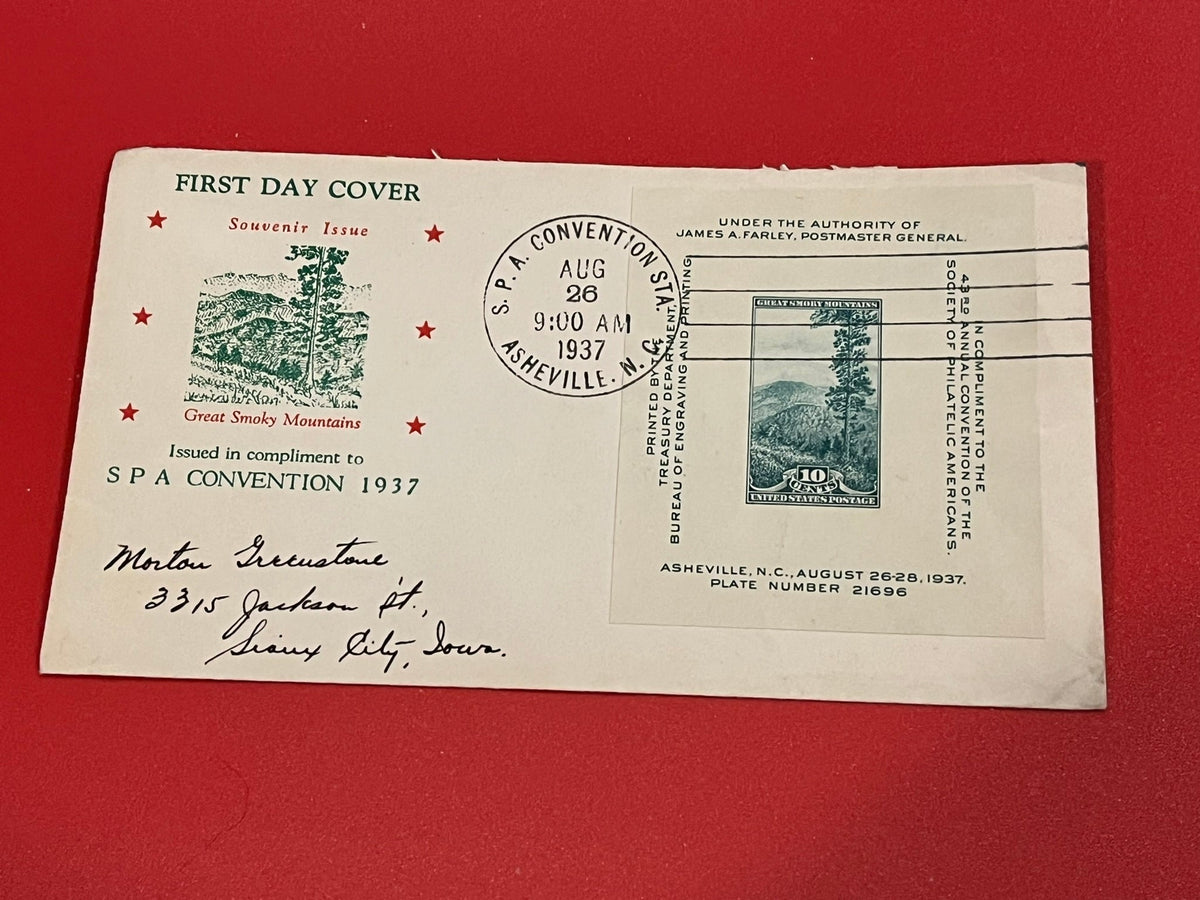 FIRST DAY COVER
Souvenir Issue
Great Smoky Mountains
Issued in compliment to
S P A CONVENTION 1937
Morton Greenstone
3315 Jackson St.,
Sioux City, Iowa.
S. P. A. CONVENTION STA.
AUG
26
9:00 AM
1937
ASHEVILLE. N. C.
UNDER THE AUTHORITY OF
JAMES A. FARLEY, POSTMASTER GENERAL.
PRINTED BY THE
TREASURY DEPARTMENT,
BUREAU OF ENGRAVING AND PRINTING.
GREAT SMOKY MOUNTAINS
10
CENTS
UNITED STATES POSTAGE
IN COMPLIMENT TO THE
43RD ANNUAL CONVENTION OF THE
SOCIETY OF PHILATELIC AMERICANS.
ASHEVILLE, N.C., AUGUST 26-28, 1937.
PLATE NUMBER 21696